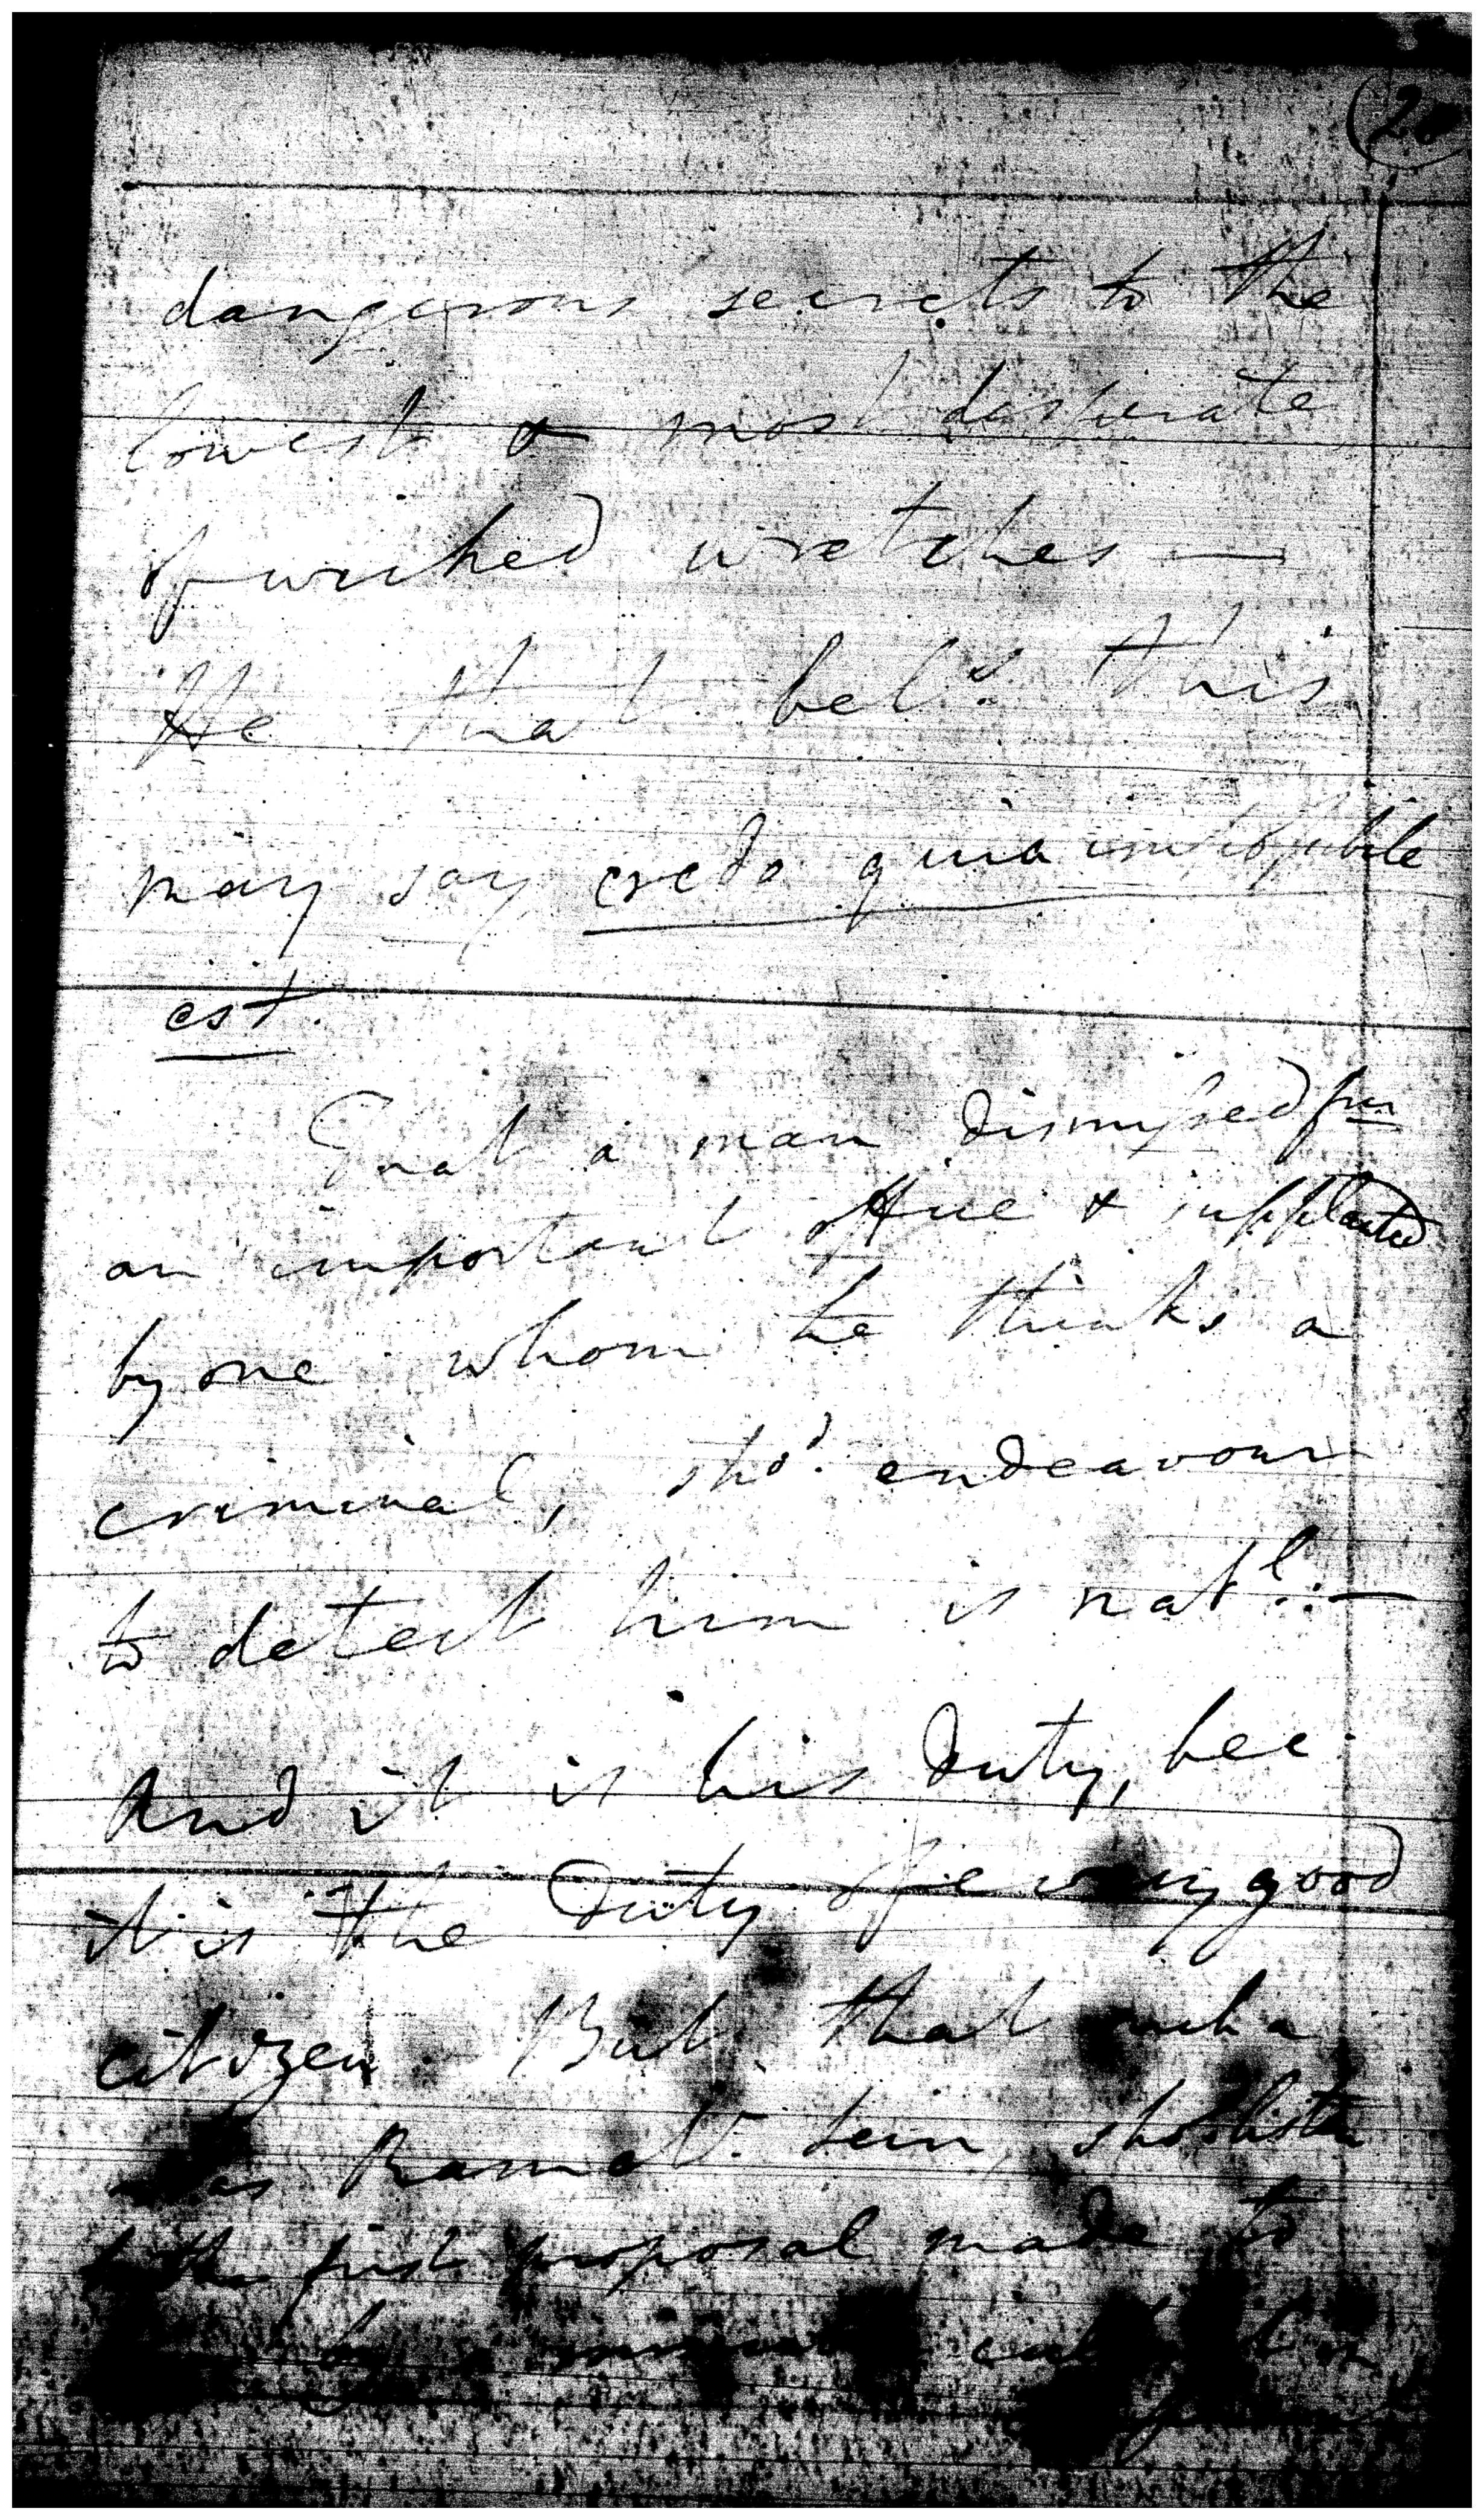 dangerous secrets to the
lowest & most desperate
of wicked wretches —
He that bel.s this
may say credo quia impossibile
est.
That a man dismissed from
an important office & supplanted
by one whom he thinks a
criminal, sho.d endeavour
to detect him is nat.l —
And it is his Duty, bec.
it is the Duty of every good
citizen. But that such a
as sho.d listen
to the first proposal made to
by a